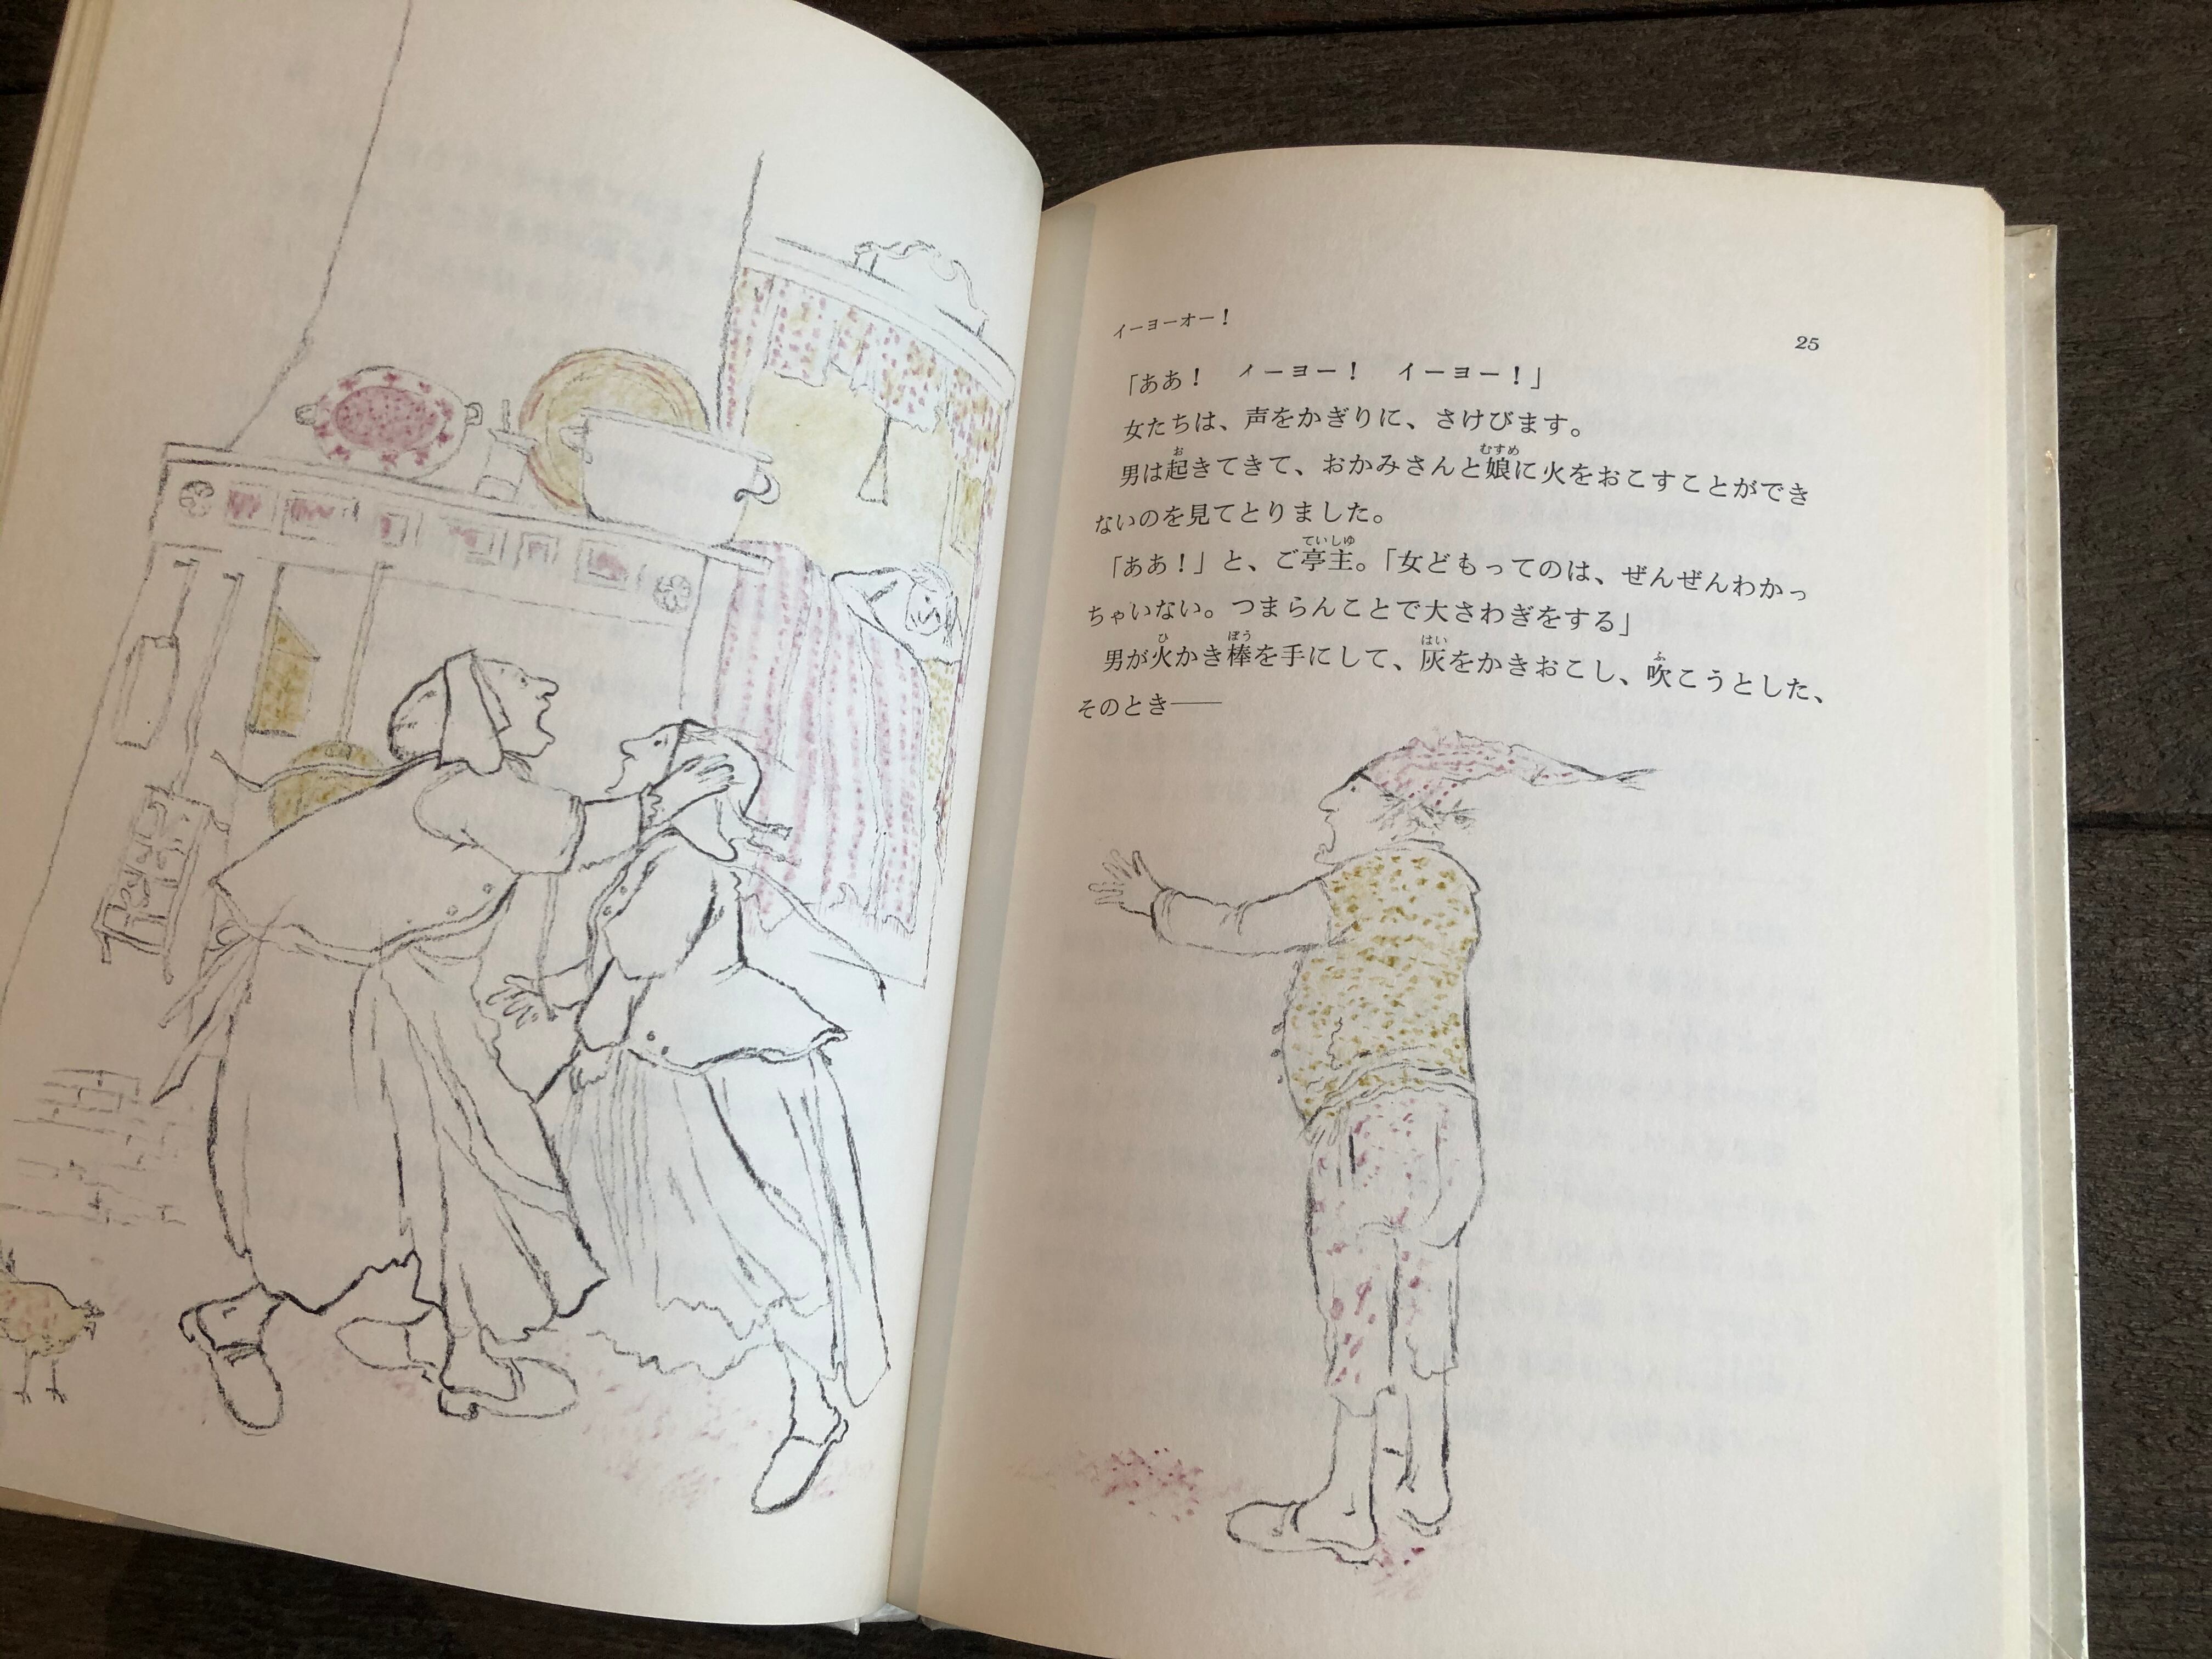 イーヨーオー！
25
「ああ！　イーヨー！　イーヨー！」
女たちは、声をかぎりに、さけびます。
男は起きてきて、おかみさんと娘に火をおこすことができ
ないのを見てとりました。
「ああ！」と、ご亭主。「女どもってのは、ぜんぜんわかっ
ちゃいない。つまらんことで大さわぎをする」
男が火かき棒を手にして、灰をかきおこし、吹こうとした、
そのとき——